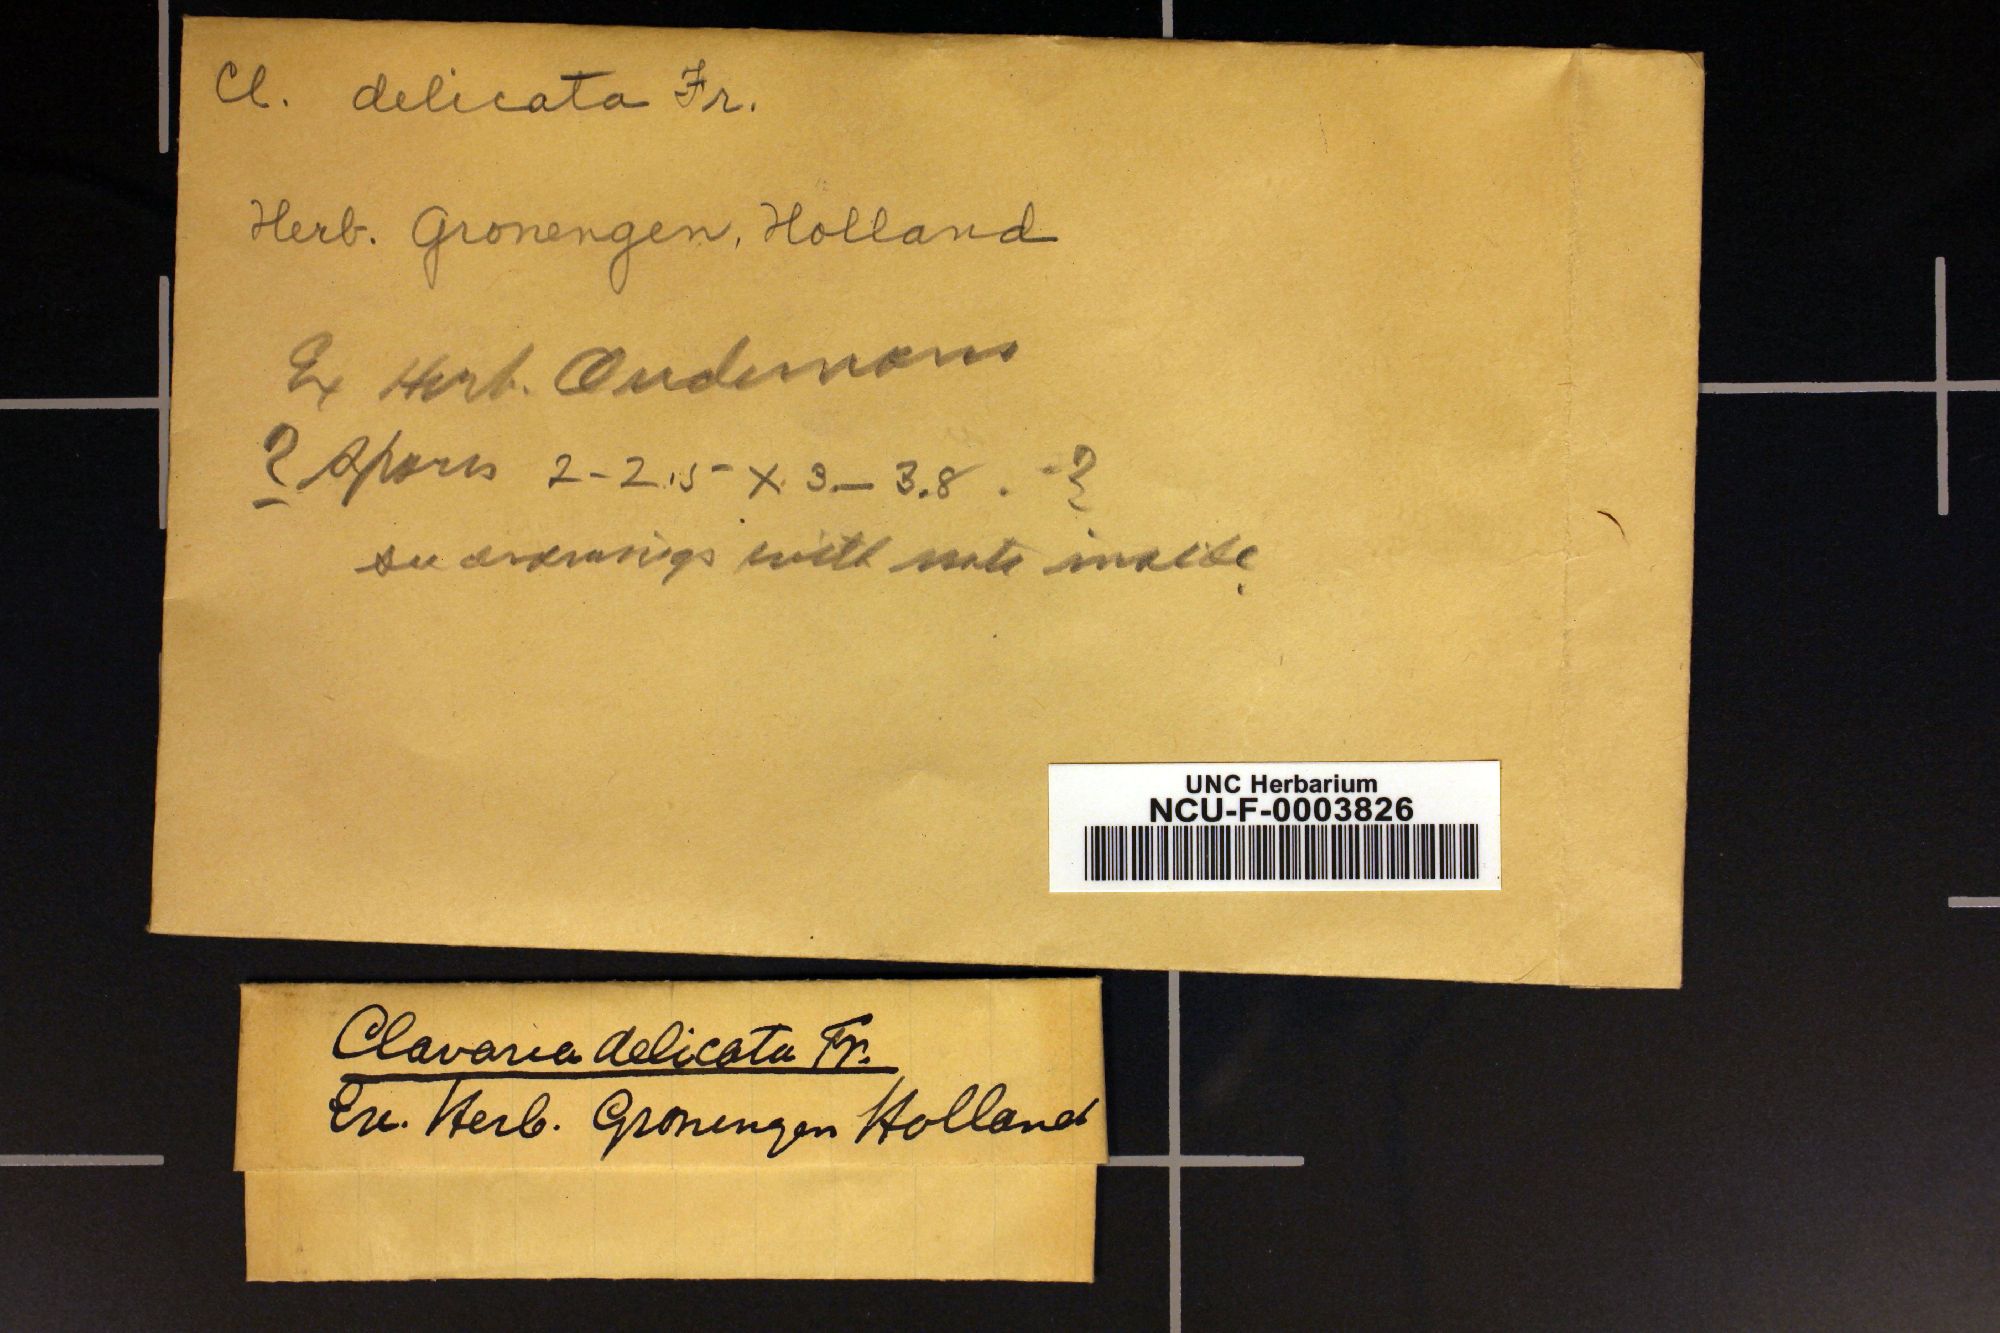 Cl. delicata Fr.
Herb. Gronengen, Holland
Ex Herb. Oudemans
? Spores 2-2.5 X 3-3.8. ?
see drawings with note inside.
UNC Herbarium
NCU-F-0003826
Clavaria delicata Fr.
Ex. Herb. Gronengen Holland